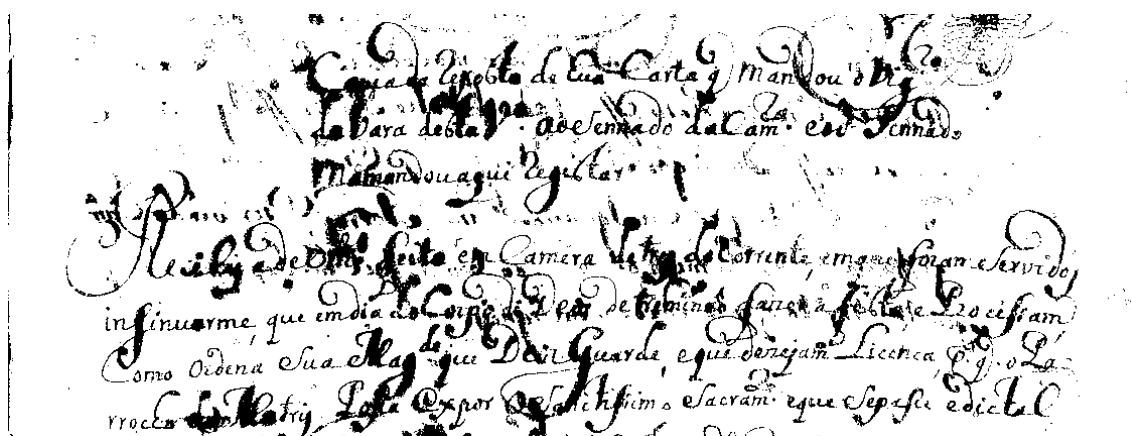 Copia da Reposta de hua Carta q̃ Mandou o Vig.ro
da Vara desta V.a ao Sennado da Cam.ra e o d.o Sennado
Ma mandou aqui Registar
Recebj a de Vm.ces feita em Camera de tres do Corrente, em que foram servidos
insinuarme, que em dia do Corpo de Deos detreminaõ fazer a festa e Procissam
Como Ordena Sua Mag.de que Deos Guarde, e que dezejam Licença, p.a q̃ o Pa-
rrocho da Matriz Possa Expor o Santissimo Sacram.to e que se passe edictal